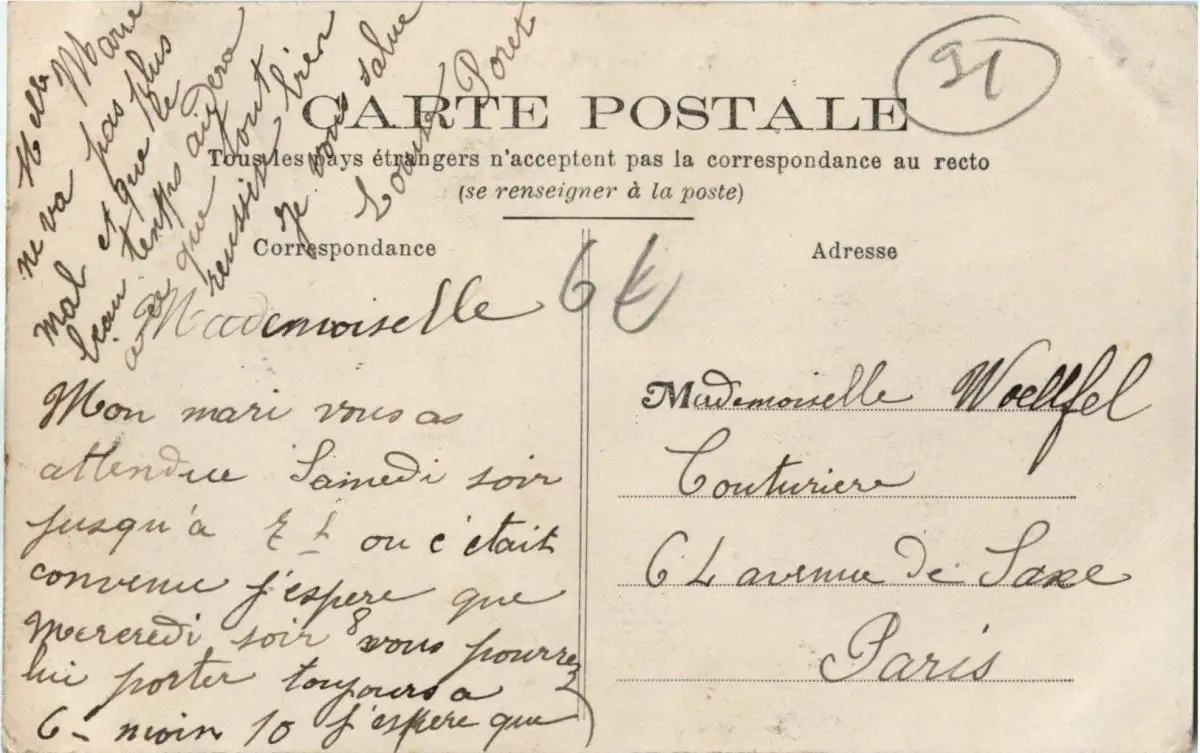 CARTE POSTALE
Tous les pays étrangers n'acceptent pas la correspondance au recto
(se renseigner à la poste)
Correspondance
Adresse
Mademoiselle
Mon mari vous as
attendue Samedi soir
jusqu'a 7 h ou c'était
convenue j'espere que
Mercredi soir 8 vous pourrez
lui porter toujours a
6 - moin 10 j'espere que
Melle Marie
ne va pas plus
mal et que le
beau temps aidera
a ce que tout
reussise bien
Je vous salue
Louise Poret
91
6
Mademoiselle Woellfel
Couturiere
64 avenue de Saxe
Paris